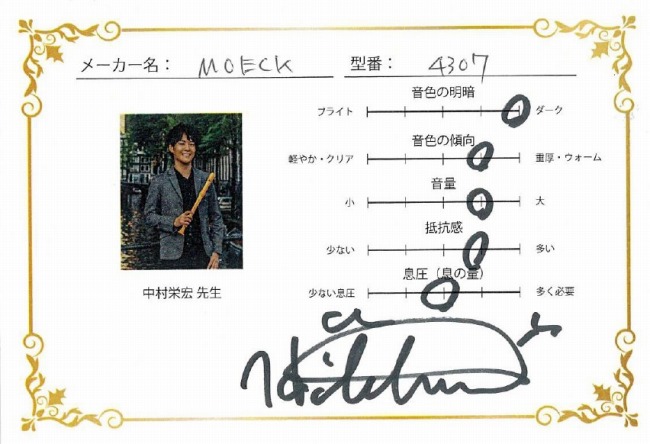 メーカー名： MOECK 型番： 4307
音色の明暗
ブライト ダーク
音色の傾向
軽やか・クリア 重厚・ウォーム
音量
小 大
抵抗感
少ない 多い
息圧（息の量）
少ない息圧 多く必要
中村栄宏 先生